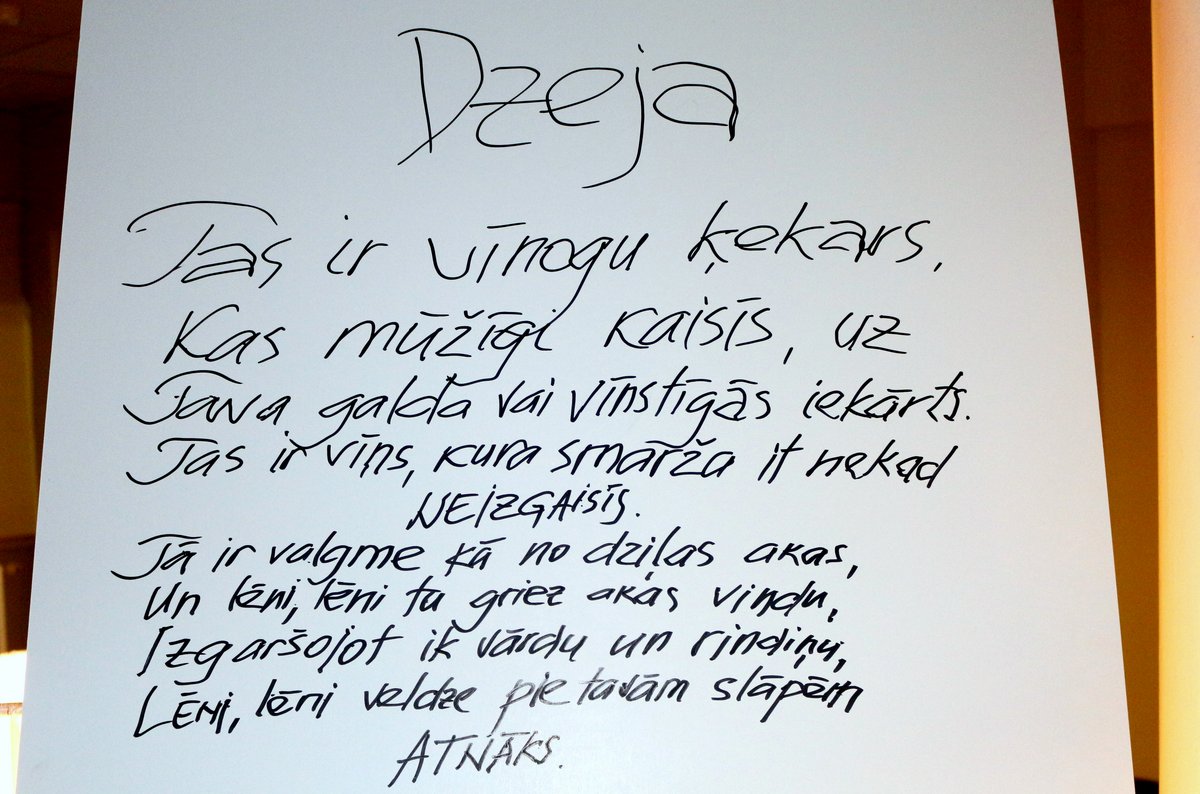 Dzeja
Tas ir vīnogu ķekars,
Kas mūžīgi kaisīs, uz
Tava galda vai vīnstīgās iekārts.
Tas ir vīns, kura smarža it nekad
NEIZGAISĪS.
Tā ir valgme kā no dziļas akas,
Un lēni, lēni tu griez akas vindu,
Izgaršojot ik vārdu un rindiņu,
Lēni, lēni veldze pie tavām slāpēm
ATNĀKS.